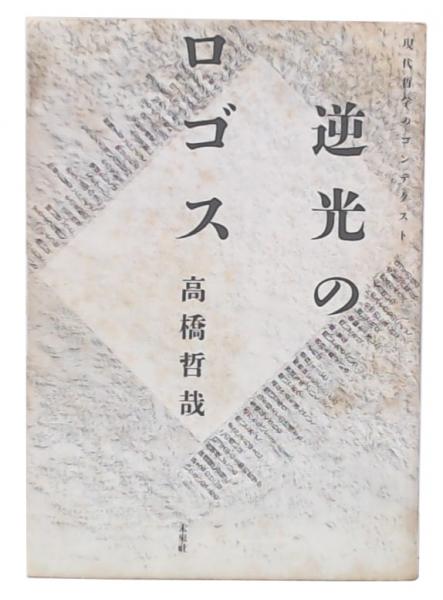 現代哲学のコンテクスト
逆光の
ロゴス
高橋哲哉
未来社